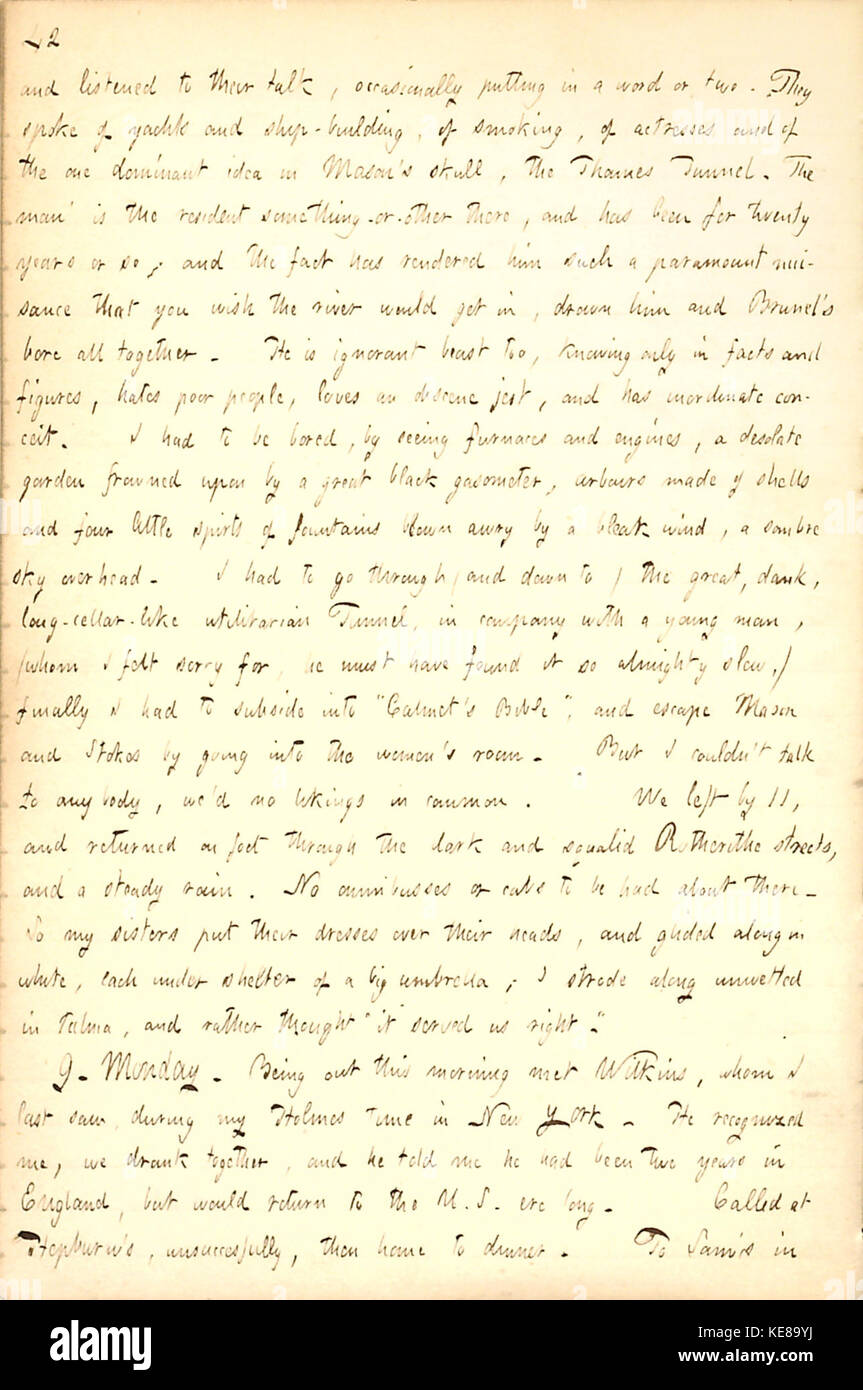 42
and listened to their talk, occasionally putting in a word or two. They
spoke of yachts and ship-building, of smoking, of actresses and of
the one dominant idea in Mason's skull, the Thames Tunnel. The
man is the resident something-or-other there, and has been for twenty
years or so; and the fact has rendered him such a paramount nui-
sance that you wish the river would get in, drown him and Brunel's
bore all together. He is ignorant beast too, knowing only in facts and
figures, hates poor people, loves an obscene jest, and has inordinate con-
ceit. I had to be bored, by seeing furnaces and engines, a desolate
garden frowned upon by a great black gasometer, arbours made of shells
and four little spirts of fountains blown awry by a bleak wind, a sombre
sky overhead. I had to go through (and down to) the great, dank,
long-cellar-like utilitarian Tunnel, in company with a young man,
(whom I felt sorry for, he must have found it so almighty slow.)
finally I had to subside into "Calmet's Bible", and escape Mason
and Stokes by going into the women's room. But I couldn't talk
to anybody, we'd no likings in common. We left by 11,
and returned on foot through the dark and squalid Rotherithe streets,
and a steady rain. No omnibusses or cabs to be had about there.
So my sisters put their dresses over their heads, and glided along in
white, each under shelter of a big umbrella; I strode along unwetted
in Talma, and rather thought "it served us right".
9. Monday. Being out this morning met Wilkins, whom I
last saw during my Holmes time in New York. He recognized
me, we drank together, and he told me he had been two years in
England, but would return to the U.S. ere long. Called at
Hepburn's, unsuccessfully, then home to dinner. To Sam's in
alamy
Image ID: KE89YJ
www.alamy.com